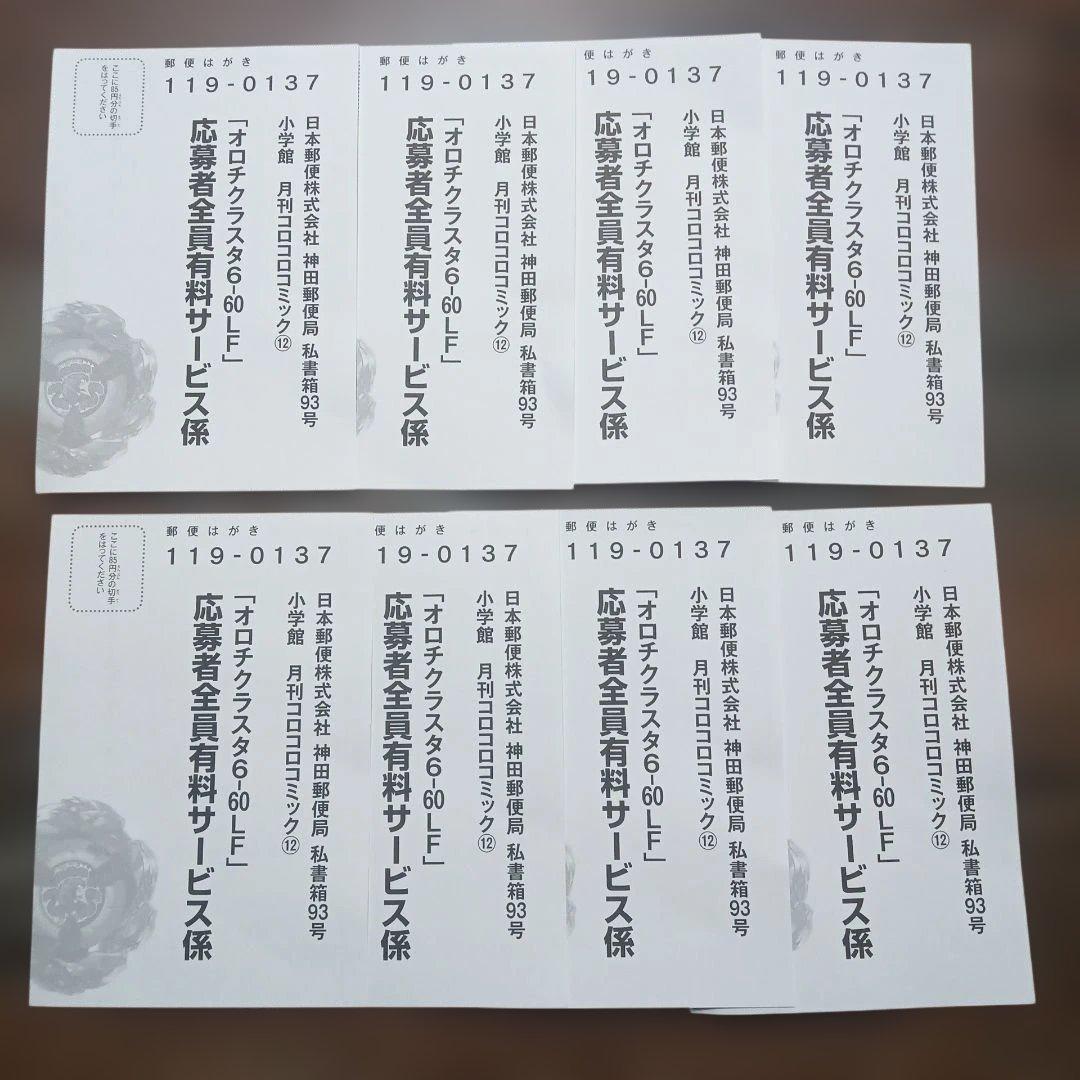 郵便はがき
119-0137
ここに85円分の切手
をはってください
日本郵便株式会社 神田郵便局 私書箱93号
小学館 月刊コロコロコミック⑫
「オロチクラスタ6-60LF」
応募者全員有料サービス係
郵便はがき
119-0137
日本郵便株式会社 神田郵便局 私書箱93号
小学館 月刊コロコロコミック⑫
「オロチクラスタ6-60LF」
応募者全員有料サービス係
便はがき
19-0137
日本郵便株式会社 神田郵便局 私書箱93号
小学館 月刊コロコロコミック⑫
「オロチクラスタ6-60LF」
応募者全員有料サービス係
郵便はがき
119-0137
日本郵便株式会社 神田郵便局 私書箱93号
小学館 月刊コロコロコミック⑫
「オロチクラスタ6-60LF」
応募者全員有料サービス係
郵便はがき
119-0137
ここに85円分の切手
をはってください
日本郵便株式会社 神田郵便局 私書箱93号
小学館 月刊コロコロコミック⑫
「オロチクラスタ6-60LF」
応募者全員有料サービス係
便はがき
19-0137
日本郵便株式会社 神田郵便局 私書箱93号
小学館 月刊コロコロコミック⑫
「オロチクラスタ6-60LF」
応募者全員有料サービス係
郵便はがき
119-0137
日本郵便株式会社 神田郵便局 私書箱93号
小学館 月刊コロコロコミック⑫
「オロチクラスタ6-60LF」
応募者全員有料サービス係
郵便はがき
119-0137
日本郵便株式会社 神田郵便局 私書箱93号
小学館 月刊コロコロコミック⑫
「オロチクラスタ6-60LF」
応募者全員有料サービス係